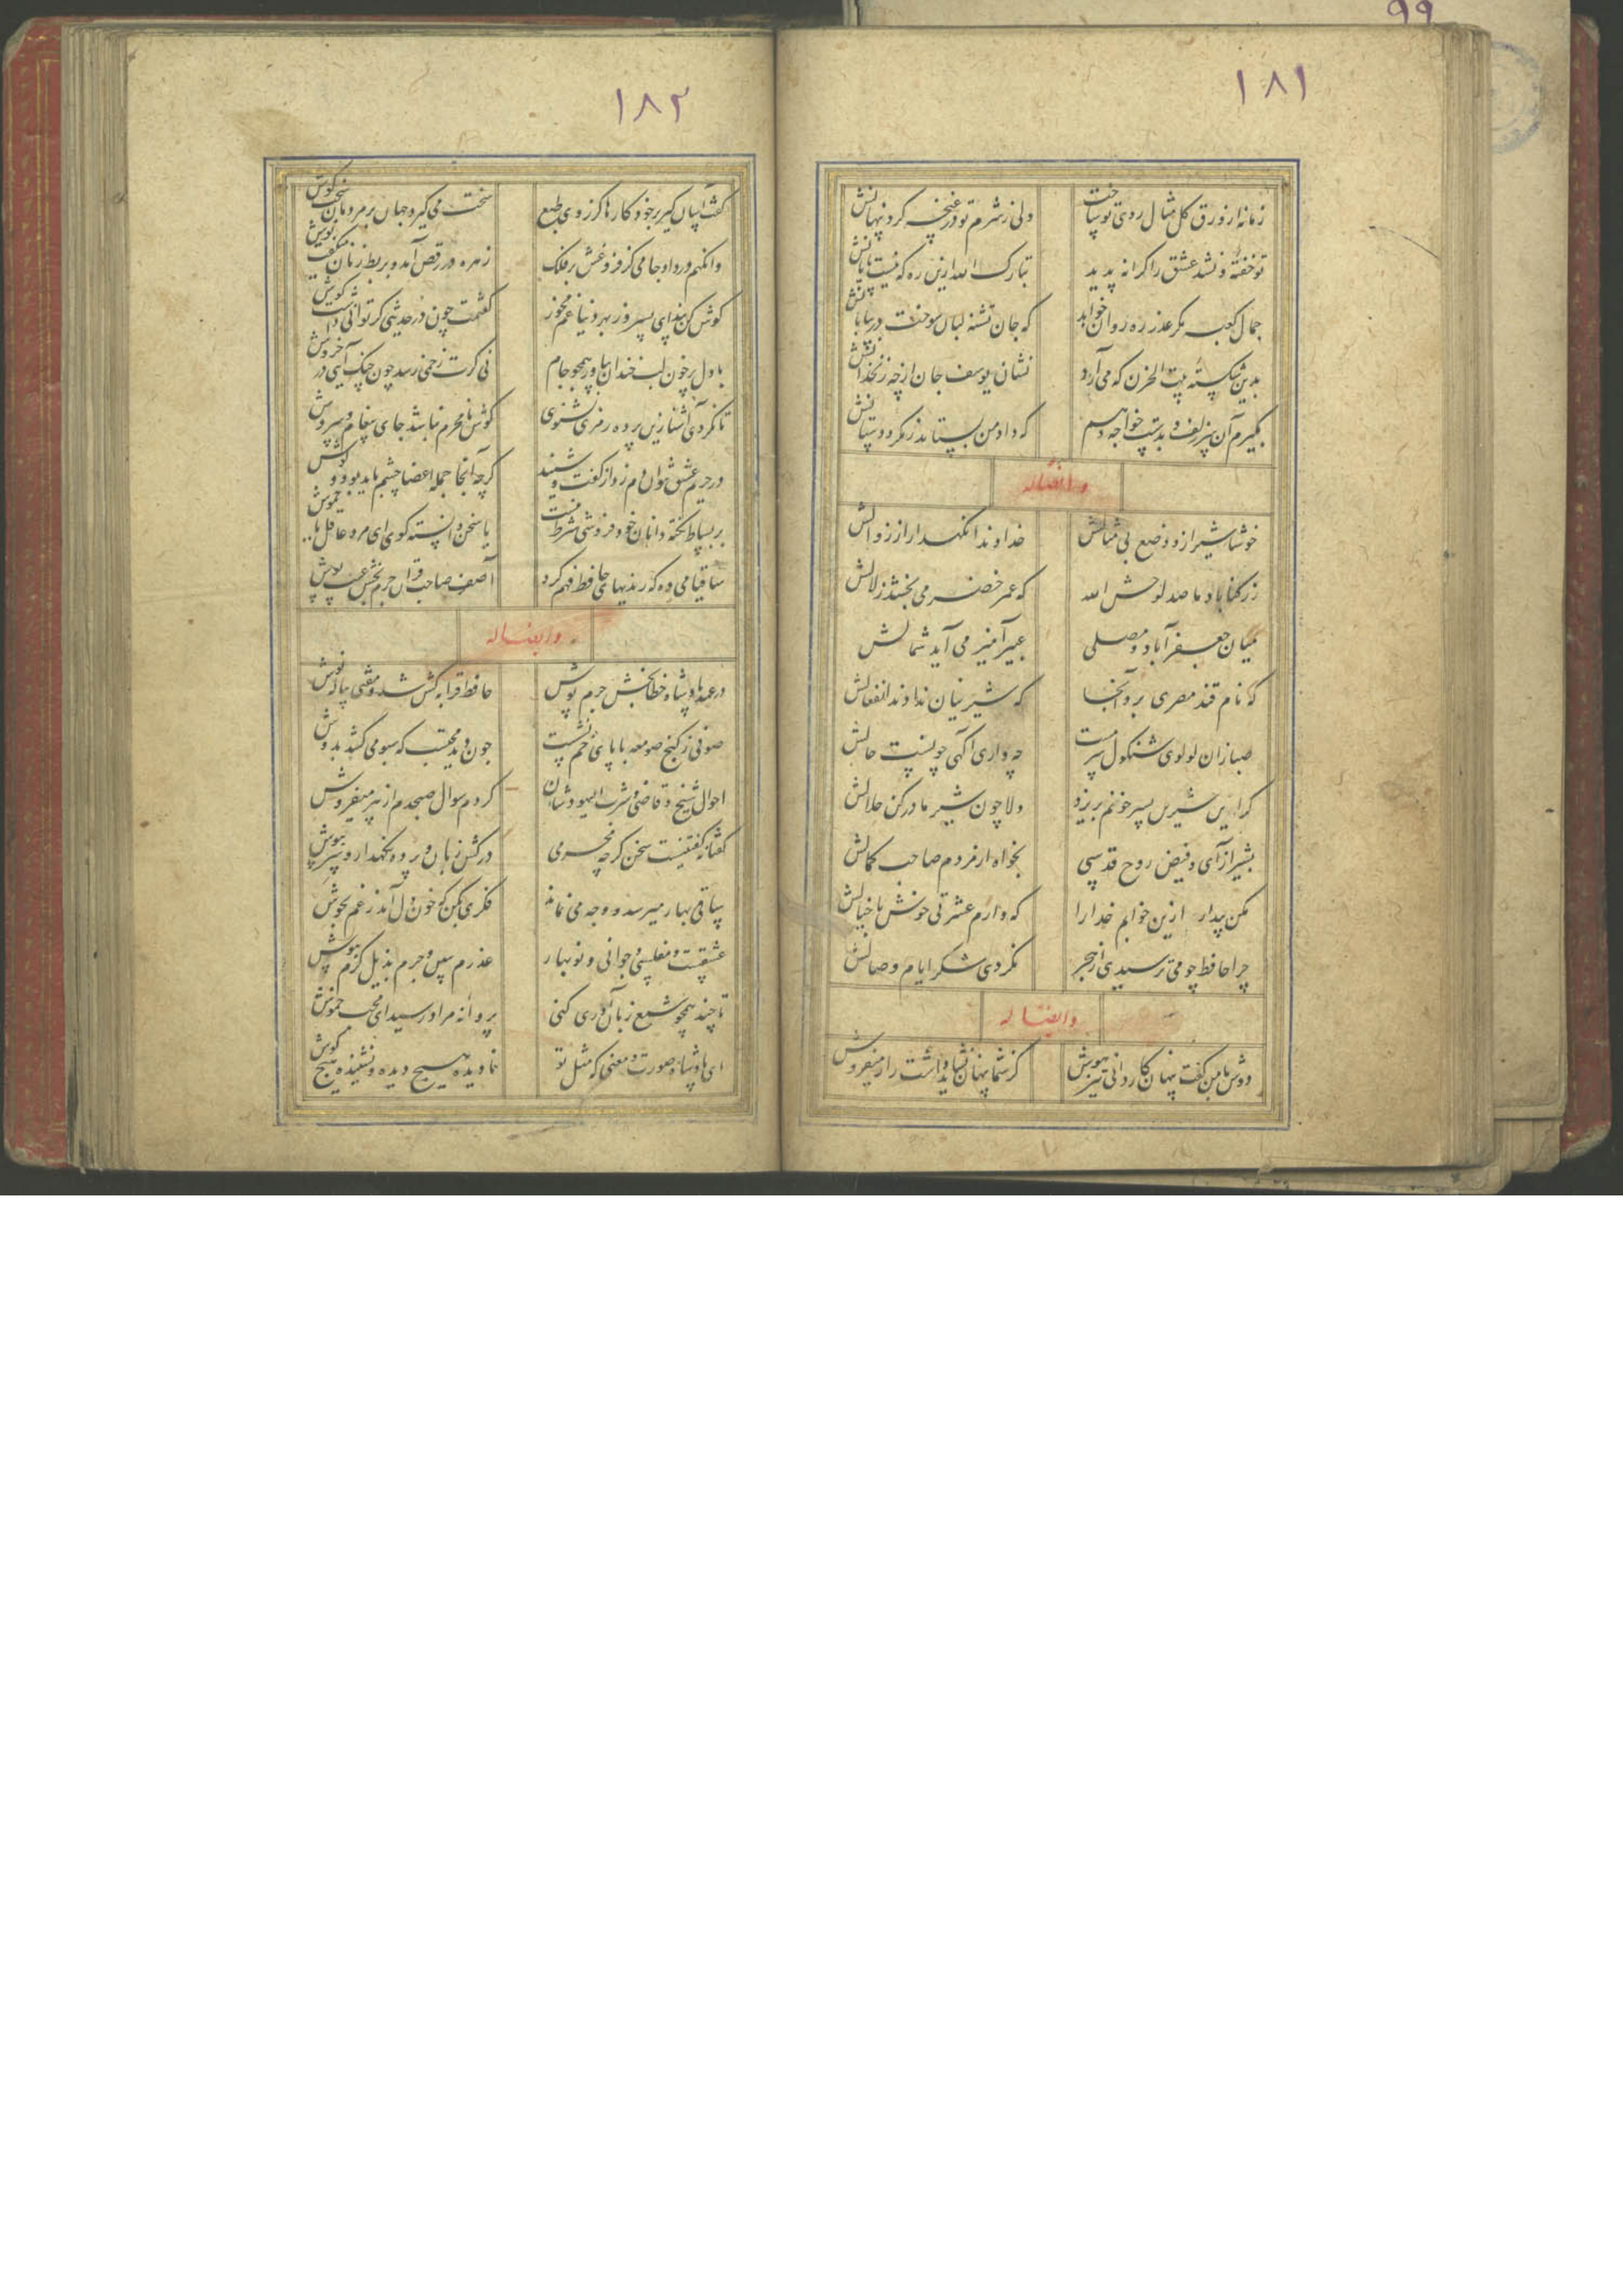 ۹۹
۱۸۱
زمانه از ورق گل مثال روی تو ساخت
ولی ز شرم تو در غنچه کرد پنهانش
تو خفتهٔ و نشد عشق را کرانه پدید
تبارک الله ازین ره که نیست پایانش
جمال کعبه مگر عذر ره روان خواهد
که جان تشنه لبان سوخت در بیابانش
بدین شکسته بیت الحزن که می آرد
نشان یوسف جان از چه زنخدانش
بگیرم آن سر زلف و بدست خواجه دهم
که داد من بستاند ز مکر و دستانش
و ایضاله
خوشا شیراز و وضع بی مثالش
خداوندا نگهدار از زوالش
ز رکناباد ما صد لوحش الله
که عمر خضر می بخشد زلالش
میان جعفرآباد و مصلی
عبیرآمیز می آید شمالش
که نام قند مصری برد آنجا
که شیرینان ندادند انفعالش
صبا زان لولوی شنگول سرمست
چه داری آگهی چونست حالش
گر این شیرین پسر خونم بریزد
دلا چون شیر مادر کن حلالش
بشیراز آی و فیض روح قدسی
بخواه از مردم صاحب کمالش
مکن بیدار ازین خوابم خدا را
که دارم عشرتی خوش با خیالش
چرا حافظ چو می ترسیدی از هجر
نکردی شکر ایام وصالش
و ایضاله
دوش با من گفت پنهان کاردانی تیزهوش
کز شما پنهان نشاید داشت راز میفروش
۱۸۲
گفت آسان گیر بر خود کارها کز روی طبع
سخت می گیرد جهان بر مردمان سخت کوش
وانگهم درداد جامی کز فروغش بر فلک
زهره در رقص آمد و بربط زنان میگفت نوش
گوش کن پند ای پسر وز بهر دنیا غم مخور
گفتمت چون در حدیثی گر توانی داشت گوش
با دل پرخون لب خندان بیاور همچو جام
نی گرت زخمی رسد چون چنگ آیی در خروش
تا نگردی آشنا زین پرده رمزی نشنوی
گوش نامحرم نباشد جای پیغام سروش
در حریم عشق نتوان دم زد از گفت و شنید
گرچه آنجا جمله اعضا چشم باید بود و گوش
بر بساط نکته دانان خود فروشی شرط نیست
یا سخن دانسته گوی ای مرد عاقل یا خموش
ساقیا می ده که رندیهای حافظ فهم کرد
آصف صاحب قران جرم بخش عیب پوش
و ایضاله
در عهد پادشاه خطابخش جرم پوش
حافظ قرابه کش شد و مفتی پیاله نوش
صوفی ز کنج صومعه با پای خم نشست
چون دید محتسب که سبو می کشد بدوش
احوال شیخ و قاضی و شرب الیهودشان
کردم سوال صبحدم از پیر میفروش
گفتا نه گفتنیست سخن گرچه محرمی
درکش زبان و پرده نگهدار و می بنوش
ساقی بهار میرسد و وجه می نماند
فکری بکن که خون دل آمد ز غم بجوش
عشقست و مفلسی و جوانی و نوبهار
عذرم بپذیر و جرم بذیل کرم بپوش
تا چند همچو شمع زبان آوری کنی
پروانه مراد رسید ای محب خموش
ای پادشاه صورت و معنی که مثل تو
نادیده هیچ دیده و نشنیده هیچ گوش